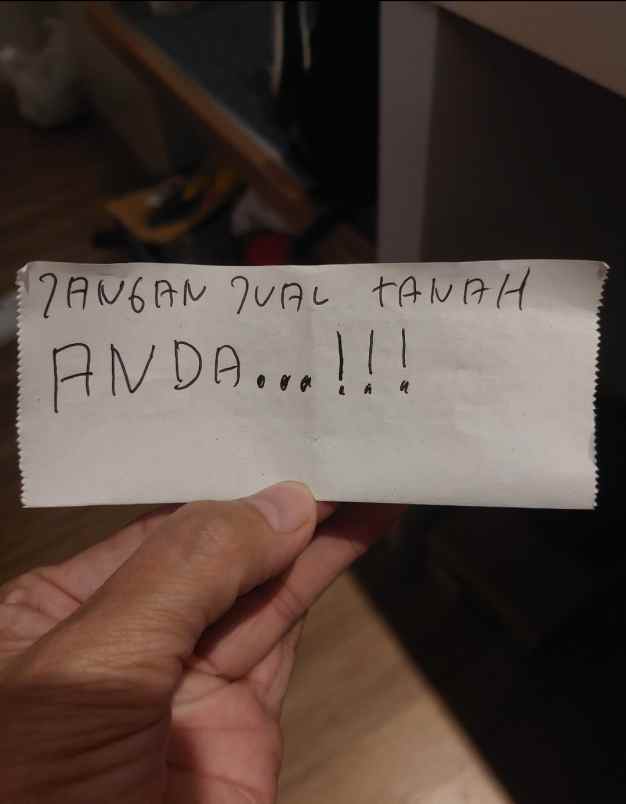 JANGAN JUAL tANAH
ANDA...!!!